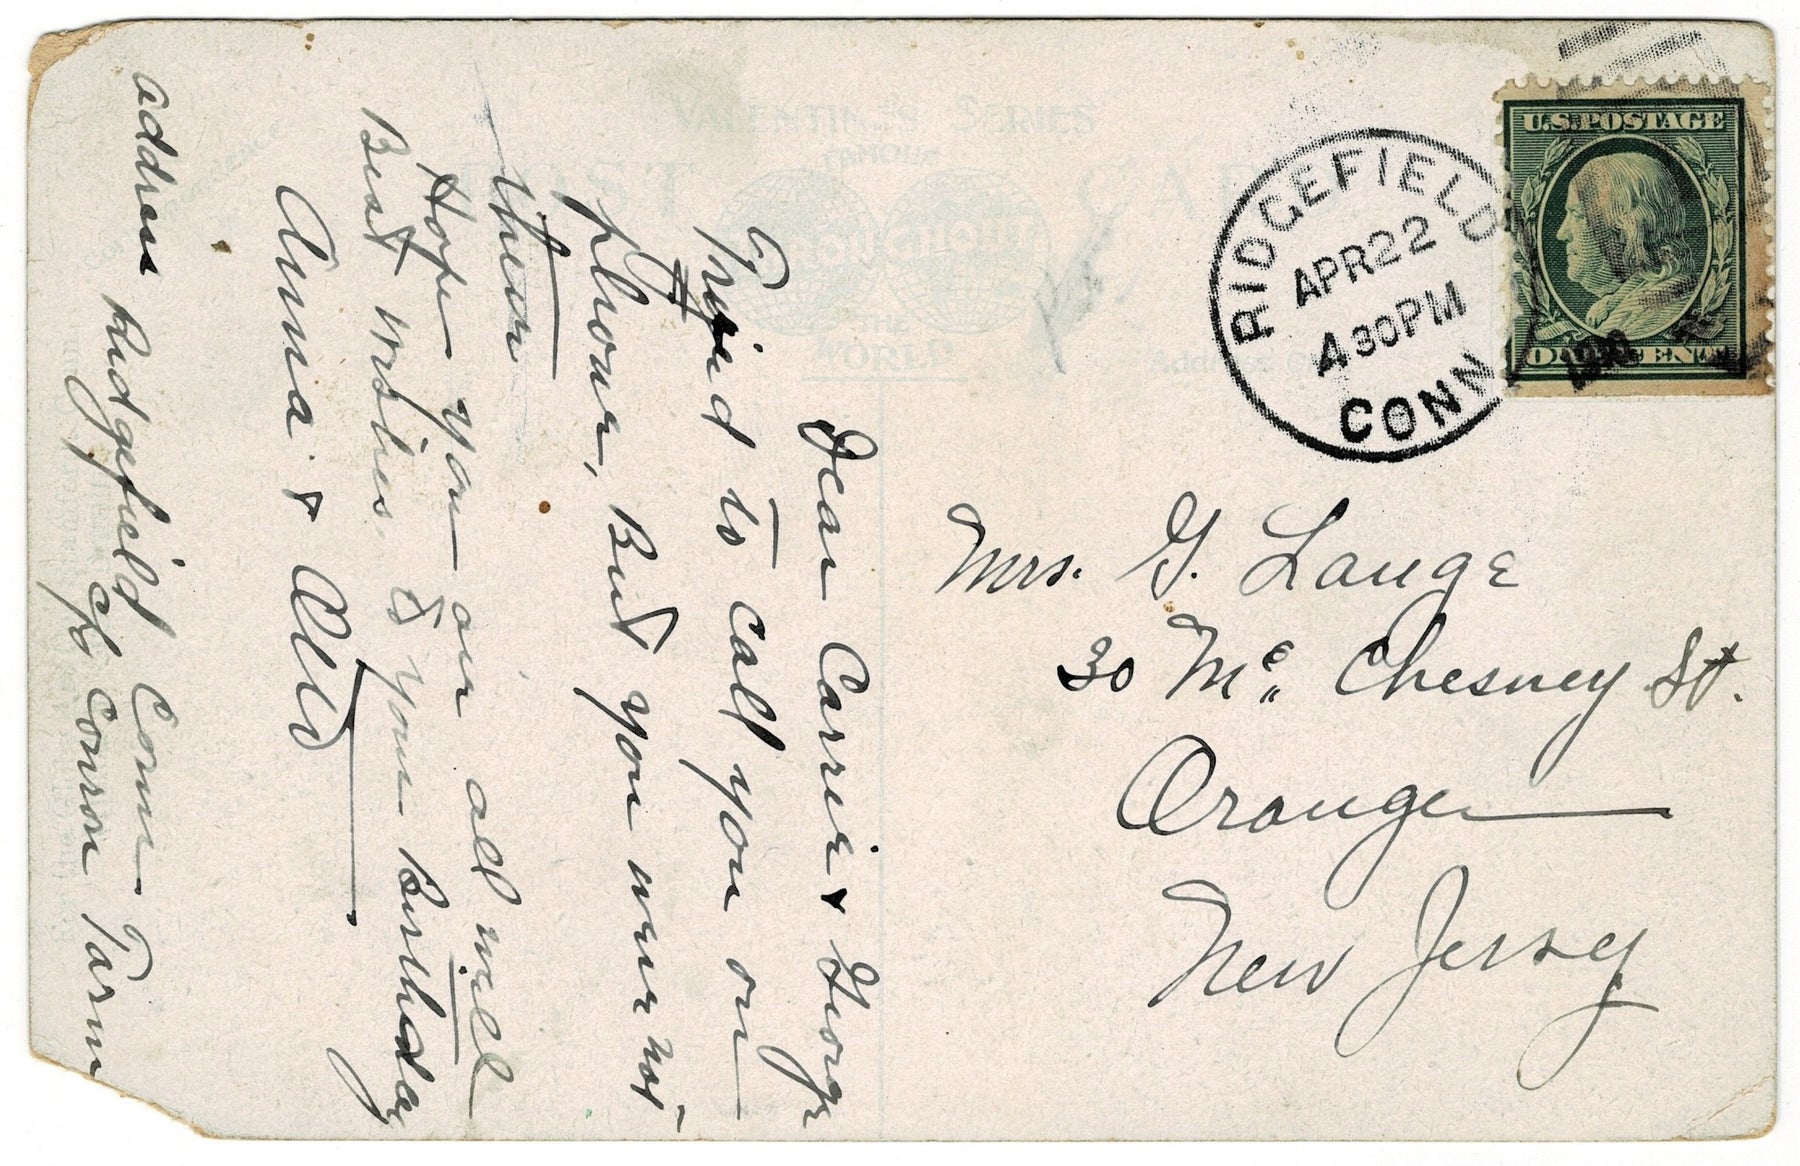 VALENTINE'S SERIES
FAMOUS
POST CARD
THROUGHOUT
THE
WORLD
Address Only
RIDGEFIELD
APR 22
4 30 PM
CONN
U.S. POSTAGE
ONE CENT
Mrs. G. Lange
30 Mc Chesney St.
Orange
New Jersey
Dear Carrie & George
Tryied to call you on
phone, But you were not
their
Hope you are all well
Best Wishes to your Birthday
Anna & Otto
address Ridgefield Conn
c/o Conron Farm